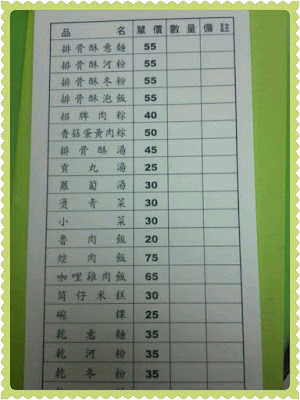 品名 單價 數量 備註
排骨酥意麵 55
排骨酥河粉 55
排骨酥冬粉 55
排骨酥泡飯 55
招牌肉粽 40
香菇蛋黃肉粽 50
排骨酥湯 45
貢丸湯 25
蘿蔔湯 30
燙青菜 30
小菜 30
魯肉飯 20
焢肉飯 75
咖哩雞肉飯 65
筒仔米糕 30
碗粿 25
乾意麵 35
乾河粉 35
乾冬粉 35